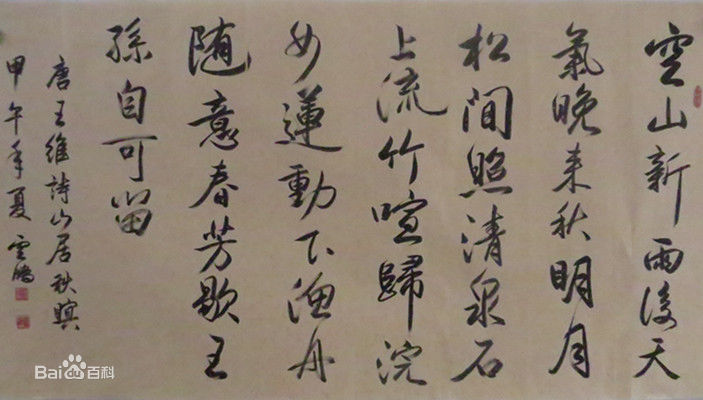 空山新雨後天
氣晚来秋明月
松間照清泉石
上流竹喧歸浣
女蓮動下漁舟
随意春芳歇王
孫自可留
唐王維詩山居秋暝
甲午年夏雲鵬
Bai百科